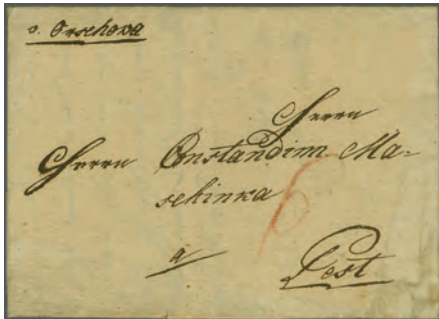 v. Orschova
Herrn
Herrn Constandim Ma-
schinka
a
Pest
6